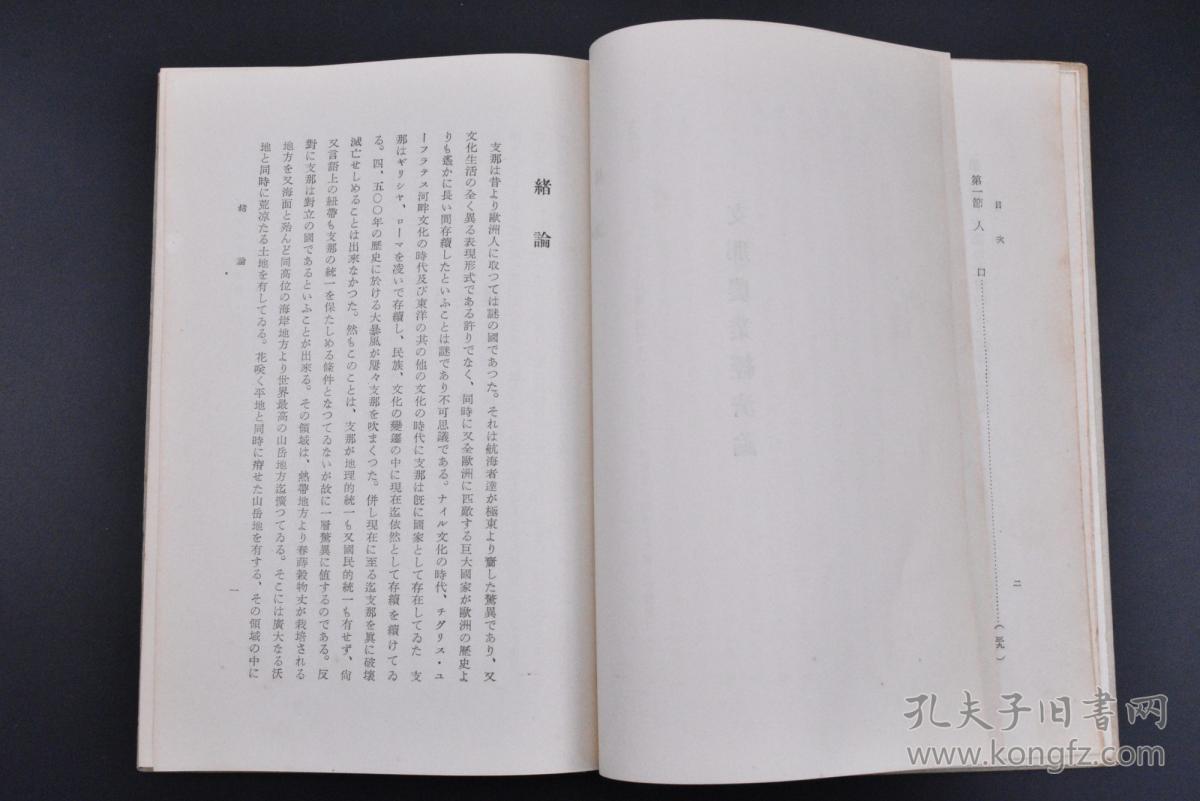 目次
二
第一節 人口……(三九)
支那農業經濟論
緒論
支那は昔より歐洲人に取つては謎の國であつた。それは航海者達が極東より齎した驚異であり、又
文化生活の全く異る表現形式である許りでなく、同時に又全歐洲に匹敵する巨大國家が歐洲の歷史よ
りも遙かに長い間存續したといふことは謎であり不可思議である。ナイル文化の時代、チグリス・ユ
ーフラテス河畔文化の時代及び東洋の其の他の文化の時代に支那は旣に國家として存在してゐた 支
那はギリシヤ、ローマを凌いで存續し、民族、文化の變遷の中に現在迄依然として存續を續けてゐ
る。四、五〇〇年の歷史に於ける大暴風が屢々支那を吹まくつた。併し現在に至る迄支那を眞に破壞
滅亡せしめることは出來なかつた。然もこのことは、支那が地理的統一も又國民的統一も有せず、尙
又言語上の紐帶も支那の統一を保たしめる條件となつてゐないが故に一層驚異に値するのである。反
對に支那は對立の國であるといふことが出來る。その領域は、熱帶地方より春蒔穀物丈が栽培される
地方を又海面と殆んど同高位の海岸地方より世界最高の山岳地方迄擴つてゐる。そこには廣大なる沃
地と同時に荒凉たる土地を有してゐる。花咲く平地と同時に瘠せた山岳地を有する、その領域の中に
緒論
一
孔夫子旧書网
www.kongfz.com